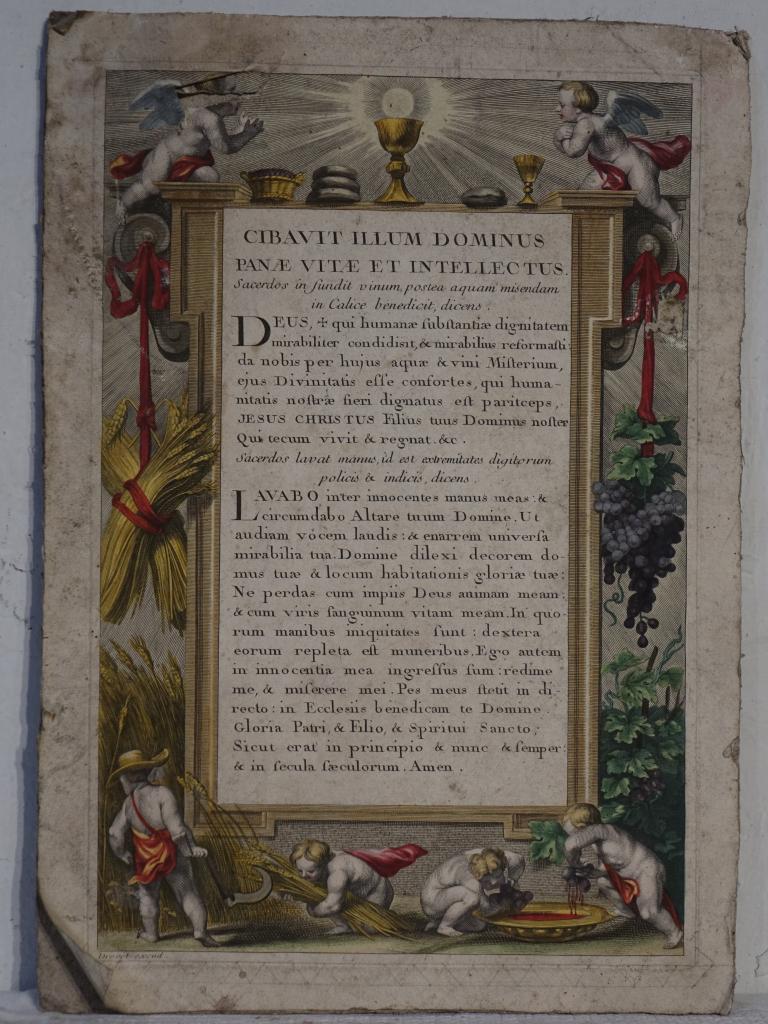 CIBAVIT ILLUM DOMINUS
PANÆ VITÆ ET INTELLECTUS.
Sacerdos in fundit vinum, postea aquam misendam
in Calice benedicit, dicens.
DEUS, ✝ qui humanæ ſubſtantiæ dignitatem
mirabiliter condidisti, & mirabilius reformaſti:
da nobis per hujus aquæ & vini Miſterium,
ejus Divinitatis eſſe conſortes, qui huma-
nitatis noſtræ fieri dignatus eſt pariteeps,
JESUS CHRISTUS Filius tuus Dominus noſter
Qui tecum vivit & regnat. &c.
Sacerdos lavat manus, id est extremitates digitorum
policis & indicis, dicens.
LAVABO inter innocentes manus meas: &
circumdabo Altare tuum Domine. Ut
audiam vocem laudis: & enarrem univerſa
mirabilia tua. Domine dilexi decorem do-
mus tuæ & locum habitationis gloriæ tuæ:
Ne perdas cum impiis Deus animam meam:
& cum viris ſanguinum vitam meam. In quo-
rum manibus iniquitates ſunt: dextera
eorum repleta eſt muneribus. Ego autem
in innocentia mea ingreſſus ſum: redime
me, & miſerere mei. Pes meus ſtetit in di-
recto: in Eccleſiis benedicam te Domine.
Gloria Patri, & Filio, & Spiritui Sancto,
Sicut erat in principio & nunc & ſemper:
& in ſecula ſæculorum. Amen.
Drevet excud